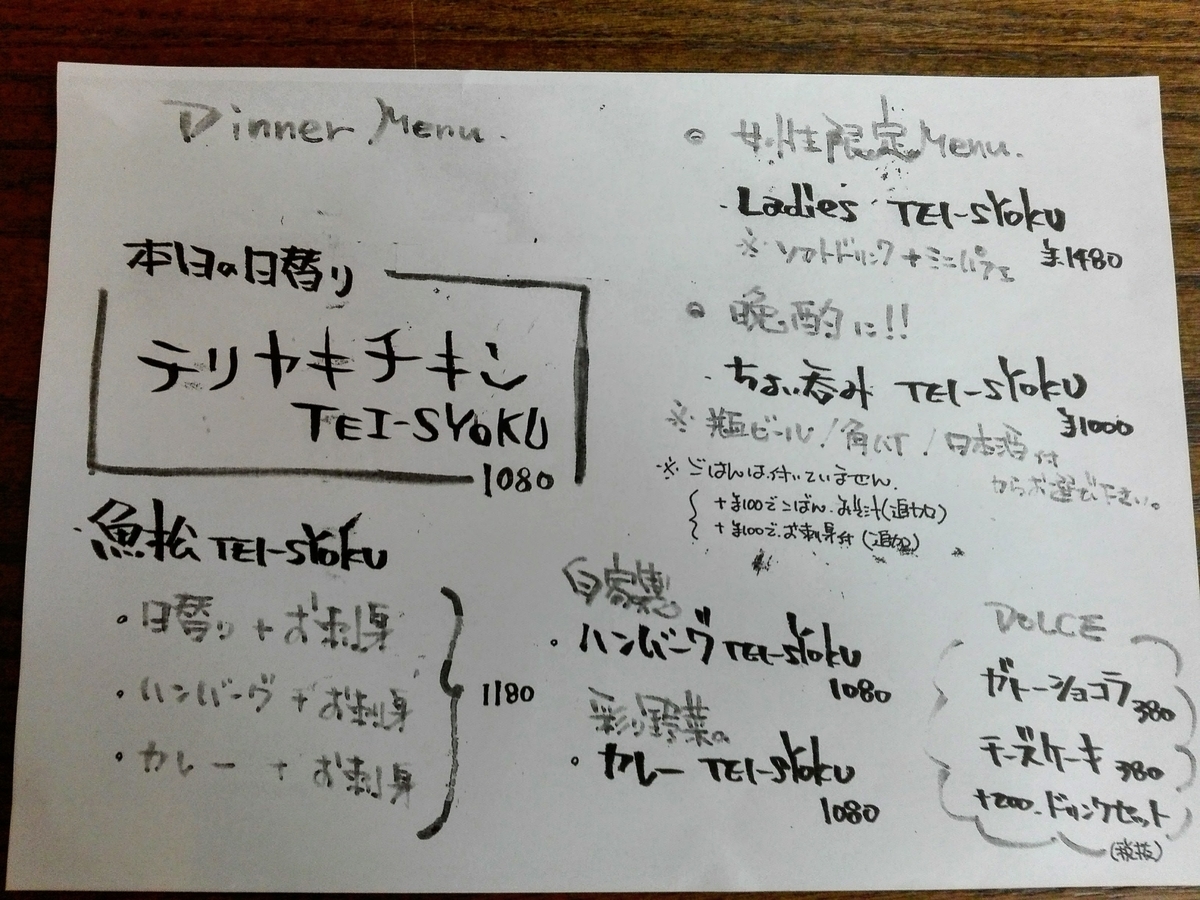 Dinner Menu.
本日の日替り
テリヤキチキン
TEI-SYOKU
1080
魚松 TEI-SYOKU
・日替り + お刺身
・ハンバーグ + お刺身
・カレー + お刺身
1180
女性限定Menu.
Ladies TEI-SYOKU
※ ソフトドリンク + ミニパフェ ¥1480
晩酌に!!
ちょい呑み TEI-SYOKU
¥1000
※ 瓶ビール / 角ハイ / 日本酒 付
からお選び下さい。
※ ごはんは付いていません.
+¥100でごはん・みそ汁(追加)
+¥100でお刺身付(追加)
自家製
ハンバーグ TEI-SYOKU
1080
彩り野菜の
カレー TEI-SYOKU
1080
DOLCE
ガトーショコラ 380
チーズケーキ 380
+200-ドリンクセット
(税抜)